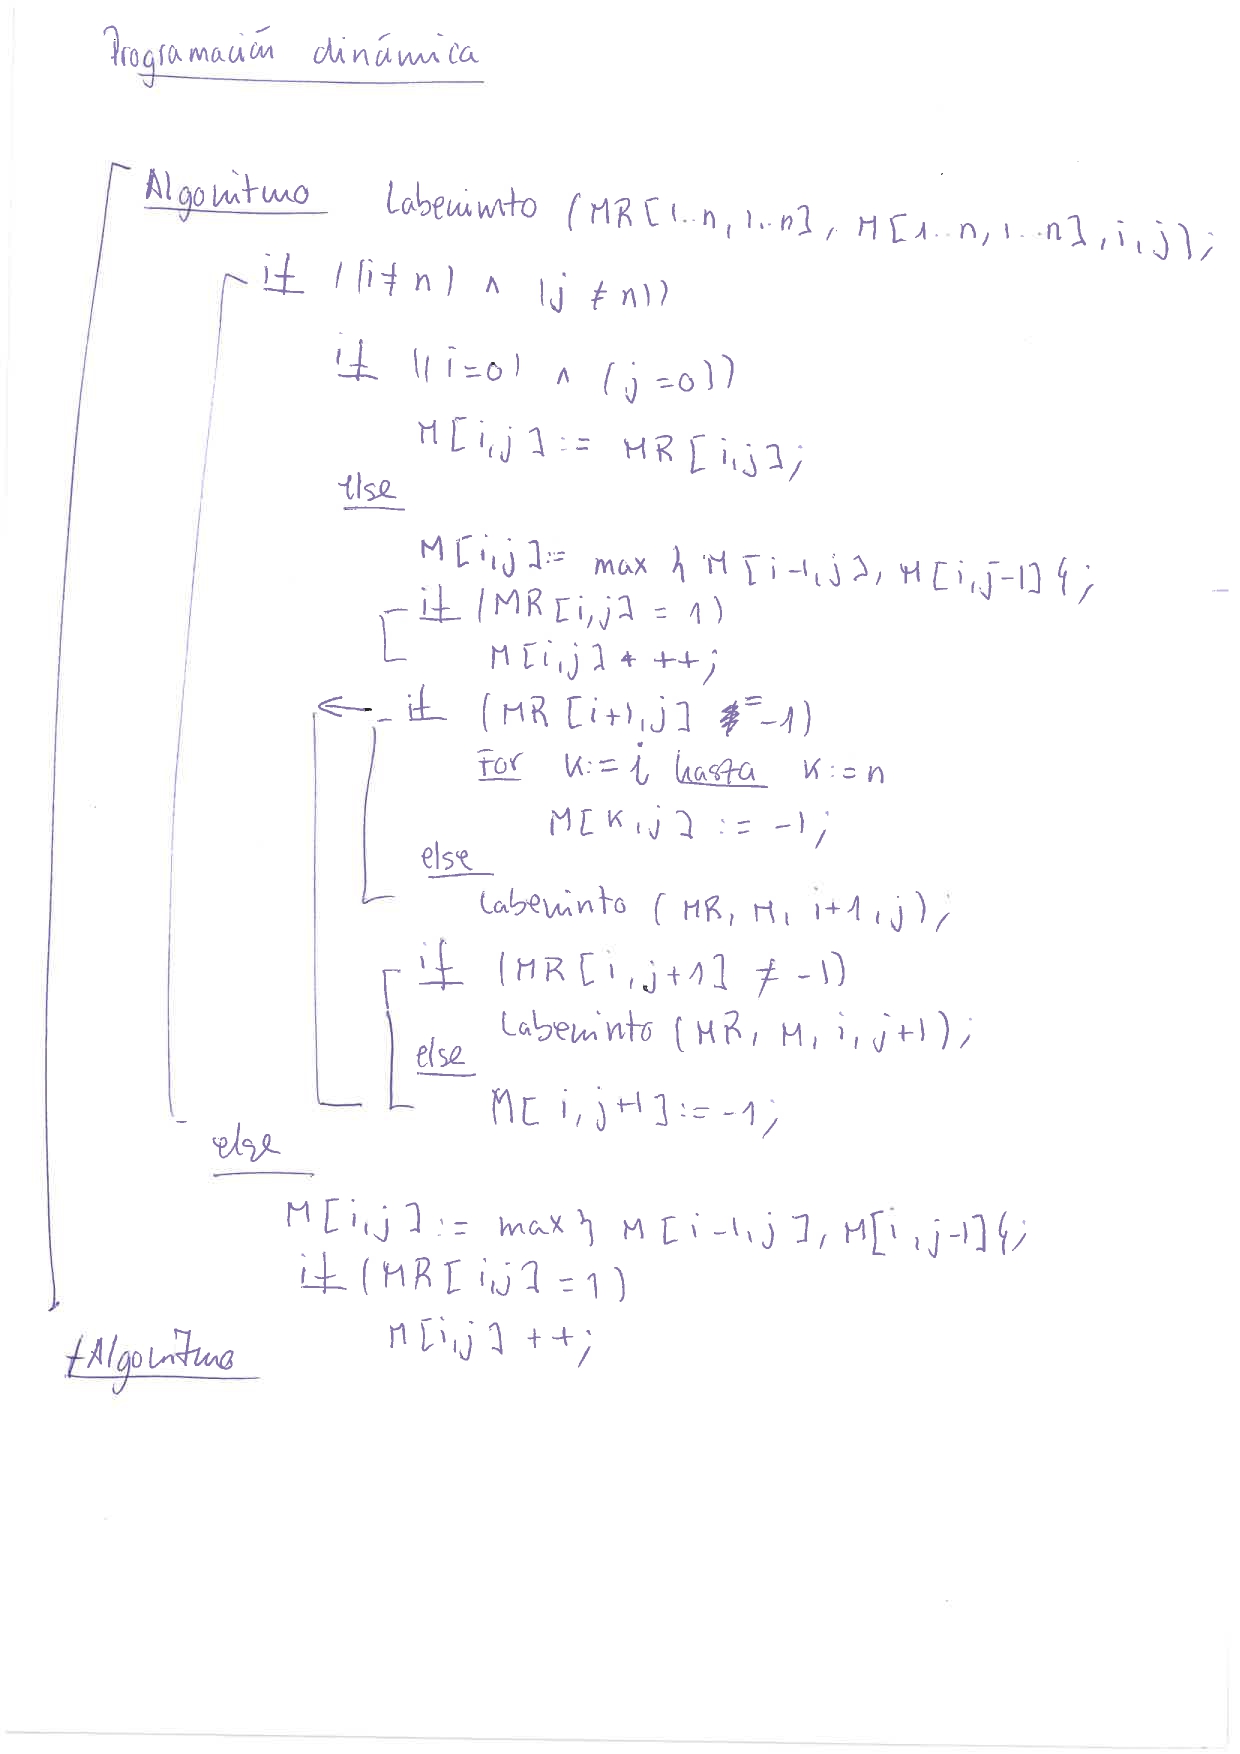 Programación dinámica
Algoritmo Laberinto (MR[1..n, 1..n], M[1..n, 1..n], i, j);
if ((i≠n) ∧ (j≠n))
if ((i=0) ∧ (j=0))
M[i,j] := MR[i,j];
else
M[i,j] := max{M[i-1,j], M[i,j-1]};
if (MR[i,j] = 1)
M[i,j] ++;
if (MR[i+1,j] = -1)
for k:=i hasta k:=n
M[k,j] := -1;
else
Laberinto (MR, M, i+1, j);
if (MR[i,j+1] ≠ -1)
Laberinto (MR, M, i, j+1);
else
M[i,j+1] := -1;
else
M[i,j] := max{M[i-1,j], M[i,j-1]};
if (MR[i,j] = 1)
M[i,j] ++;
fAlgoritmo